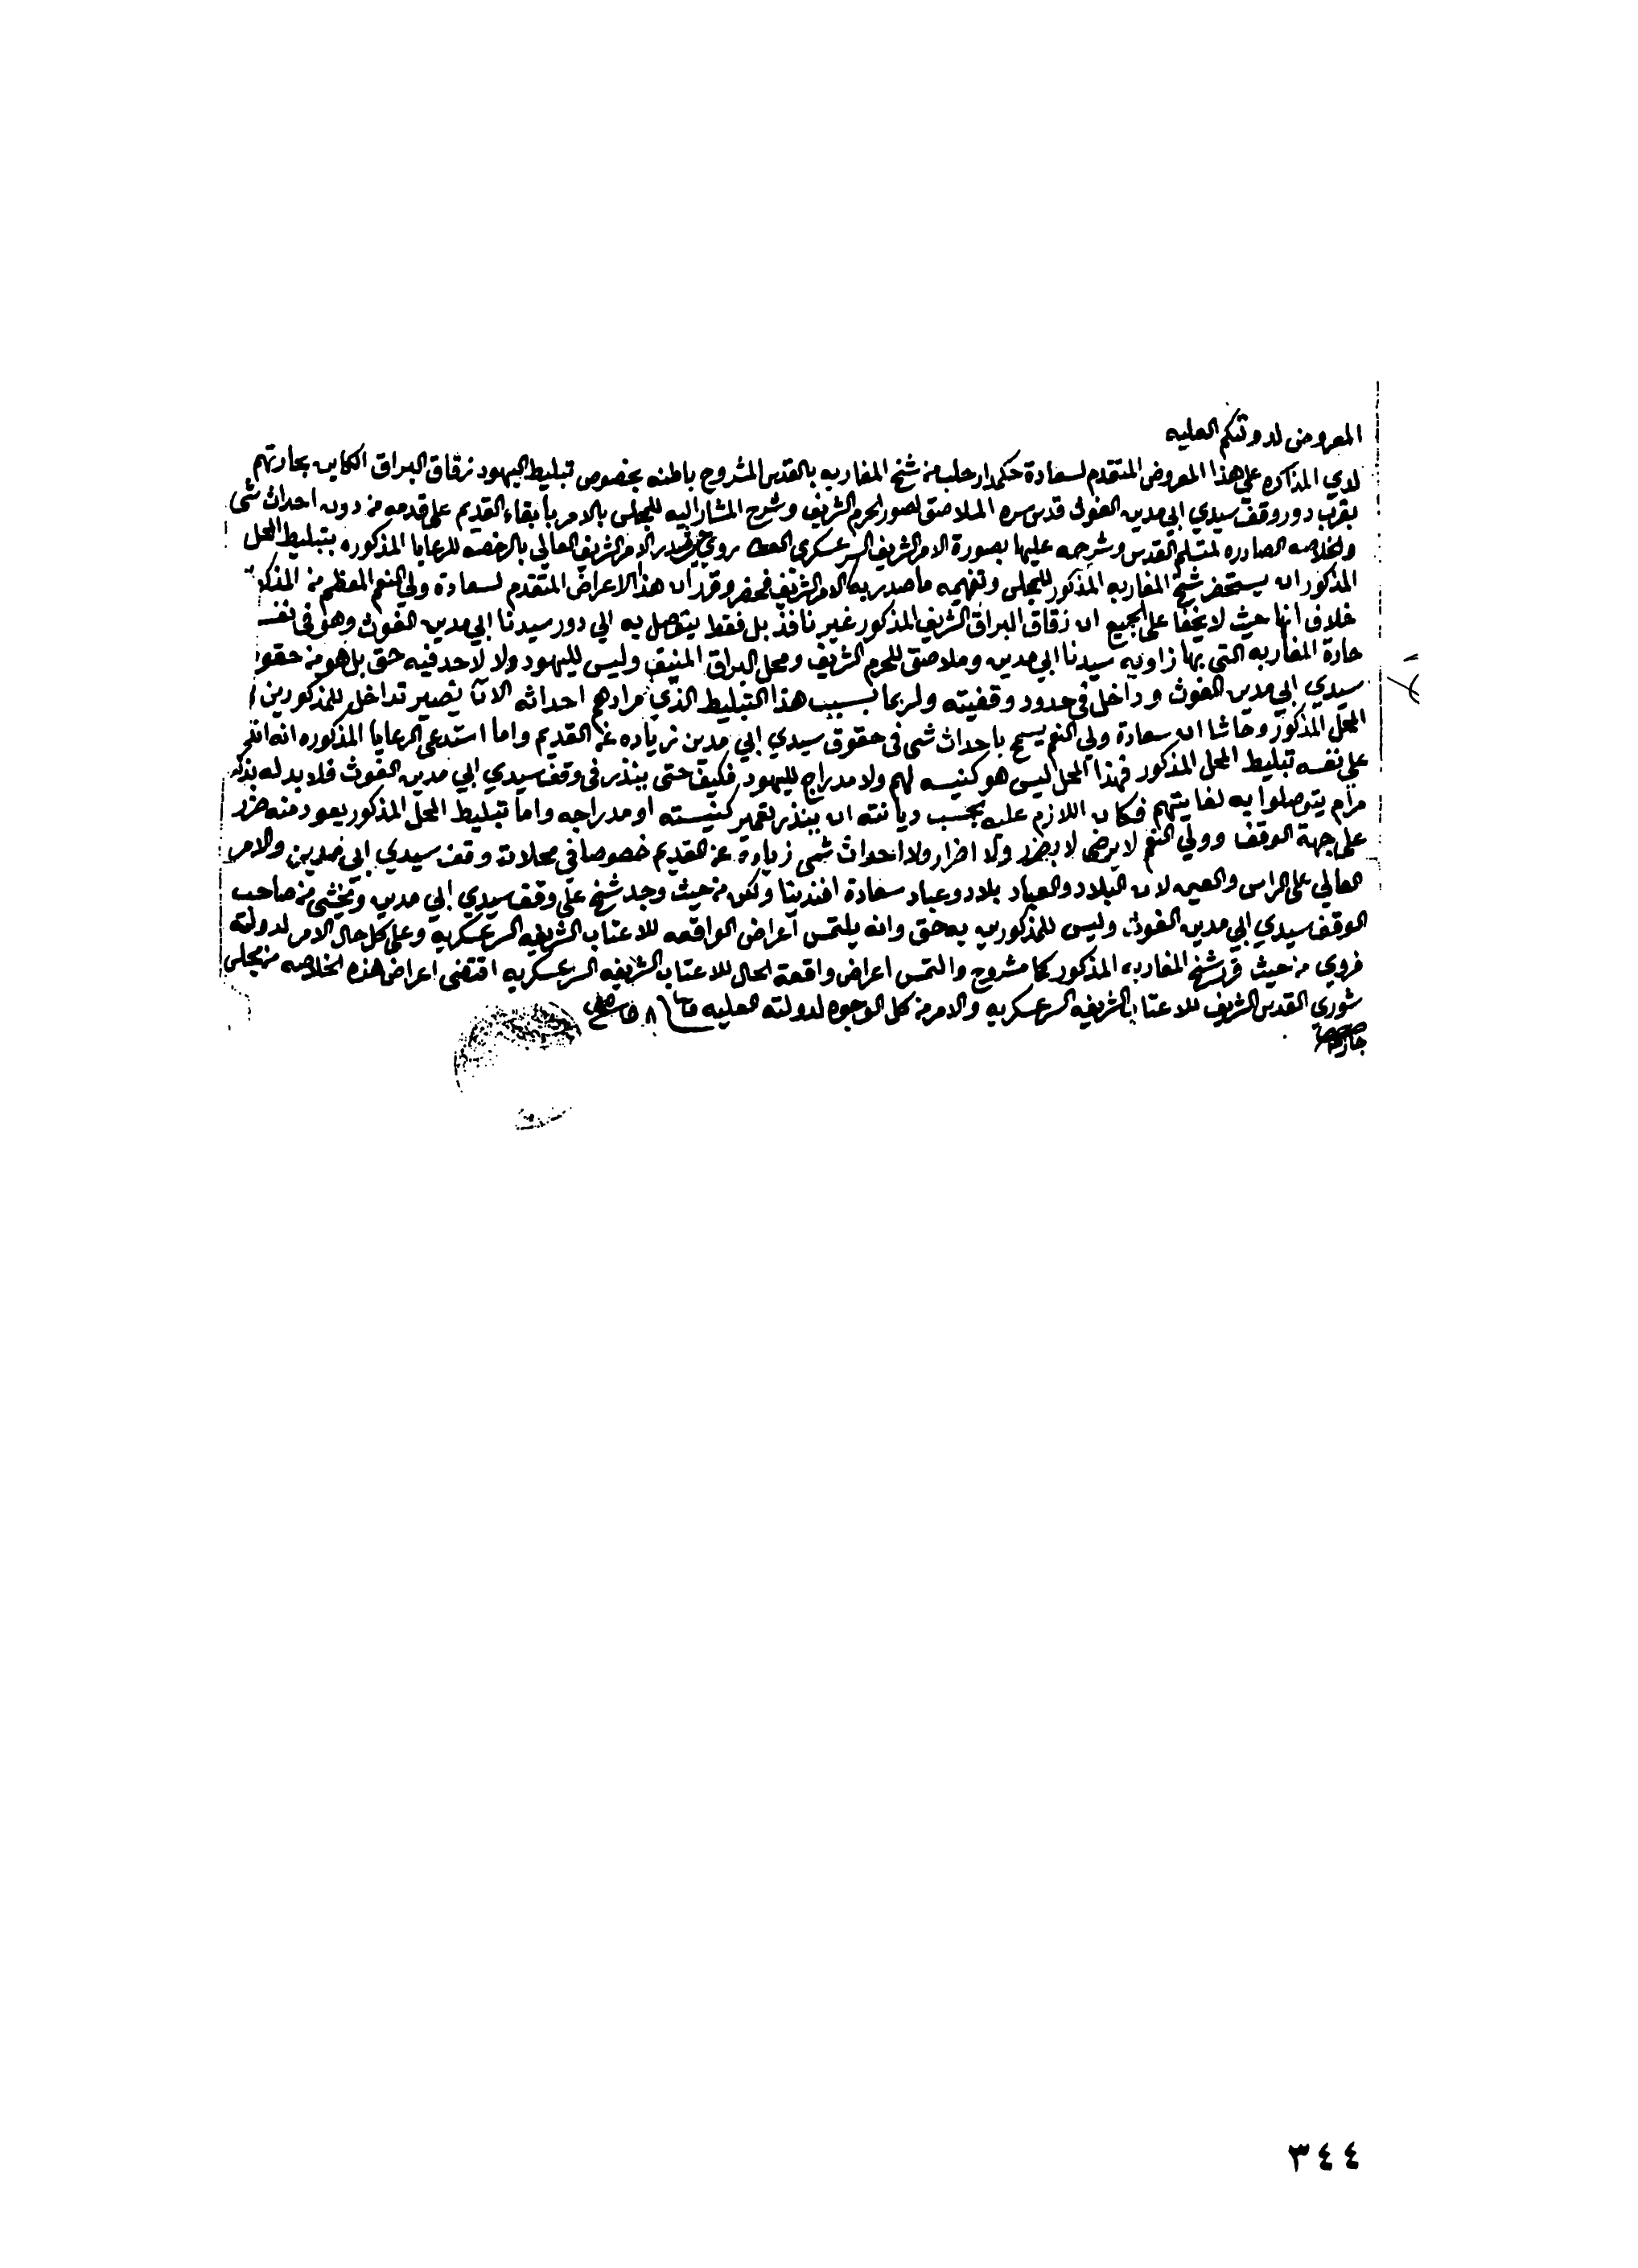 المعروض لدولتكم العليه
لدي المذاكره على هذا المعروض المتقدم لسعادة حكمدار حلب من شيخ المغاربه بالقدس المشروح باطنه بخصوص تبليط اليهود زقاق البراق الكاين بحارتهم
بقرب دور وقف سيدي ابي مدين الغوث قدس سره الملاصق لصور الحرم الشريف وشرح المشار اليه للمجلس بالامر بأبقاء القديم على قدمه من دون احداث شي
والخلاصه الصادره لمتسلم القدس وشرحه عليها بصورة الامر الشريف السر عسكري روي حيث صدر الامر الشريف العالي بالرخصه للرعايا المذكوره بتبليط المحل
المذكور ان يستحضر شيخ المغاربه المذكور للمجلس وتفهيمه ما صدر به الامر الشريف فحضر وقرر ان هذا الاعراض المتقدم لسعادة ولي النعم المعظم من
خلاف حيث لا يخفا على الجميع ان زقاق البراق الشريف المذكور غير نافذ بل فقط يتوصل به الي دور سيدنا ابي مدين الغوث وهو في نفس
حارة المغاربه التي بها زاوية سيدنا ابي مدين وملاصق للحرم الشريف ومحل البراق المنيف وليس لليهود ولا لاحد فيه حق بل هو من حقو
سيدي ابي مدين الغوث وداخل في حدود وقفيته ولربما بسبب هذا التبليط الذي مرادهم احداثه الان يصير تداخل للمذكورين
المحل المذكور وحاشا ان سعادة ولي النعم يسمح باحداث شي في حقوق سيدي ابي مدين زياده عن القديم واما استدعى الرعايا المذكوره انه
على نفسه تبليط المحل المذكور فهذا المحل ليس هو كنيسه لهم ولا مدراج لليهود فكيف حتى ينذر في وقف سيدي ابي مدين الغوث فلا بد له
مرام يتوصلوا به لغايتهم فكان اللازم عليه بحسب ديانته ان ينذر بتعمير كنيسته او مدراجه واما تبليط المحل المذكور يعود منه ضرر
على جهة الوقف وولي النعم لا يرضى لا بضرر ولا اضرار ولا احداث شي زيادة عن القديم خصوصا في محلات وقف سيدي ابي مدين والامر
العالي على الراس والعين لان البلاد والعباد بلاد وعباد سعادة افندينا ولكن من حيث وجد شيخ على وقف سيدي ابي مدين ويخشى من صاحب
الوقف سيدي ابي مدين الغوث وليس للمذكورين به حق وانه يلتمس اعراض الواقعه للاعتاب الشريفه السر عسكريه وعلى كل حال الامر لدولته
فروي من حيث قرر شيخ المغاربه المذكور كما مشروح والتمس اعراض واقعة الحال للاعتاب الشريفه السر عسكريه اقتضى اعراض هذه الخلاصه من مجلس
شورى القدس الشريف للاعتاب الشريفه السر عسكريه والامر من كل الوجوه لدولته العليه
٣٤٤